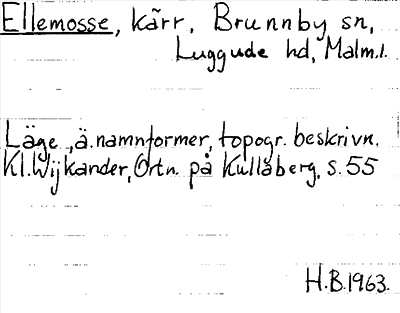 Ellemosse, kärr, Brunnby sn,
Luggude hd, Malm.l.
Läge, ä. namnformer, topogr. beskrivn.
Kl. Wijkander, Ortn. på Kullaberg, s. 55
H.B. 1963.